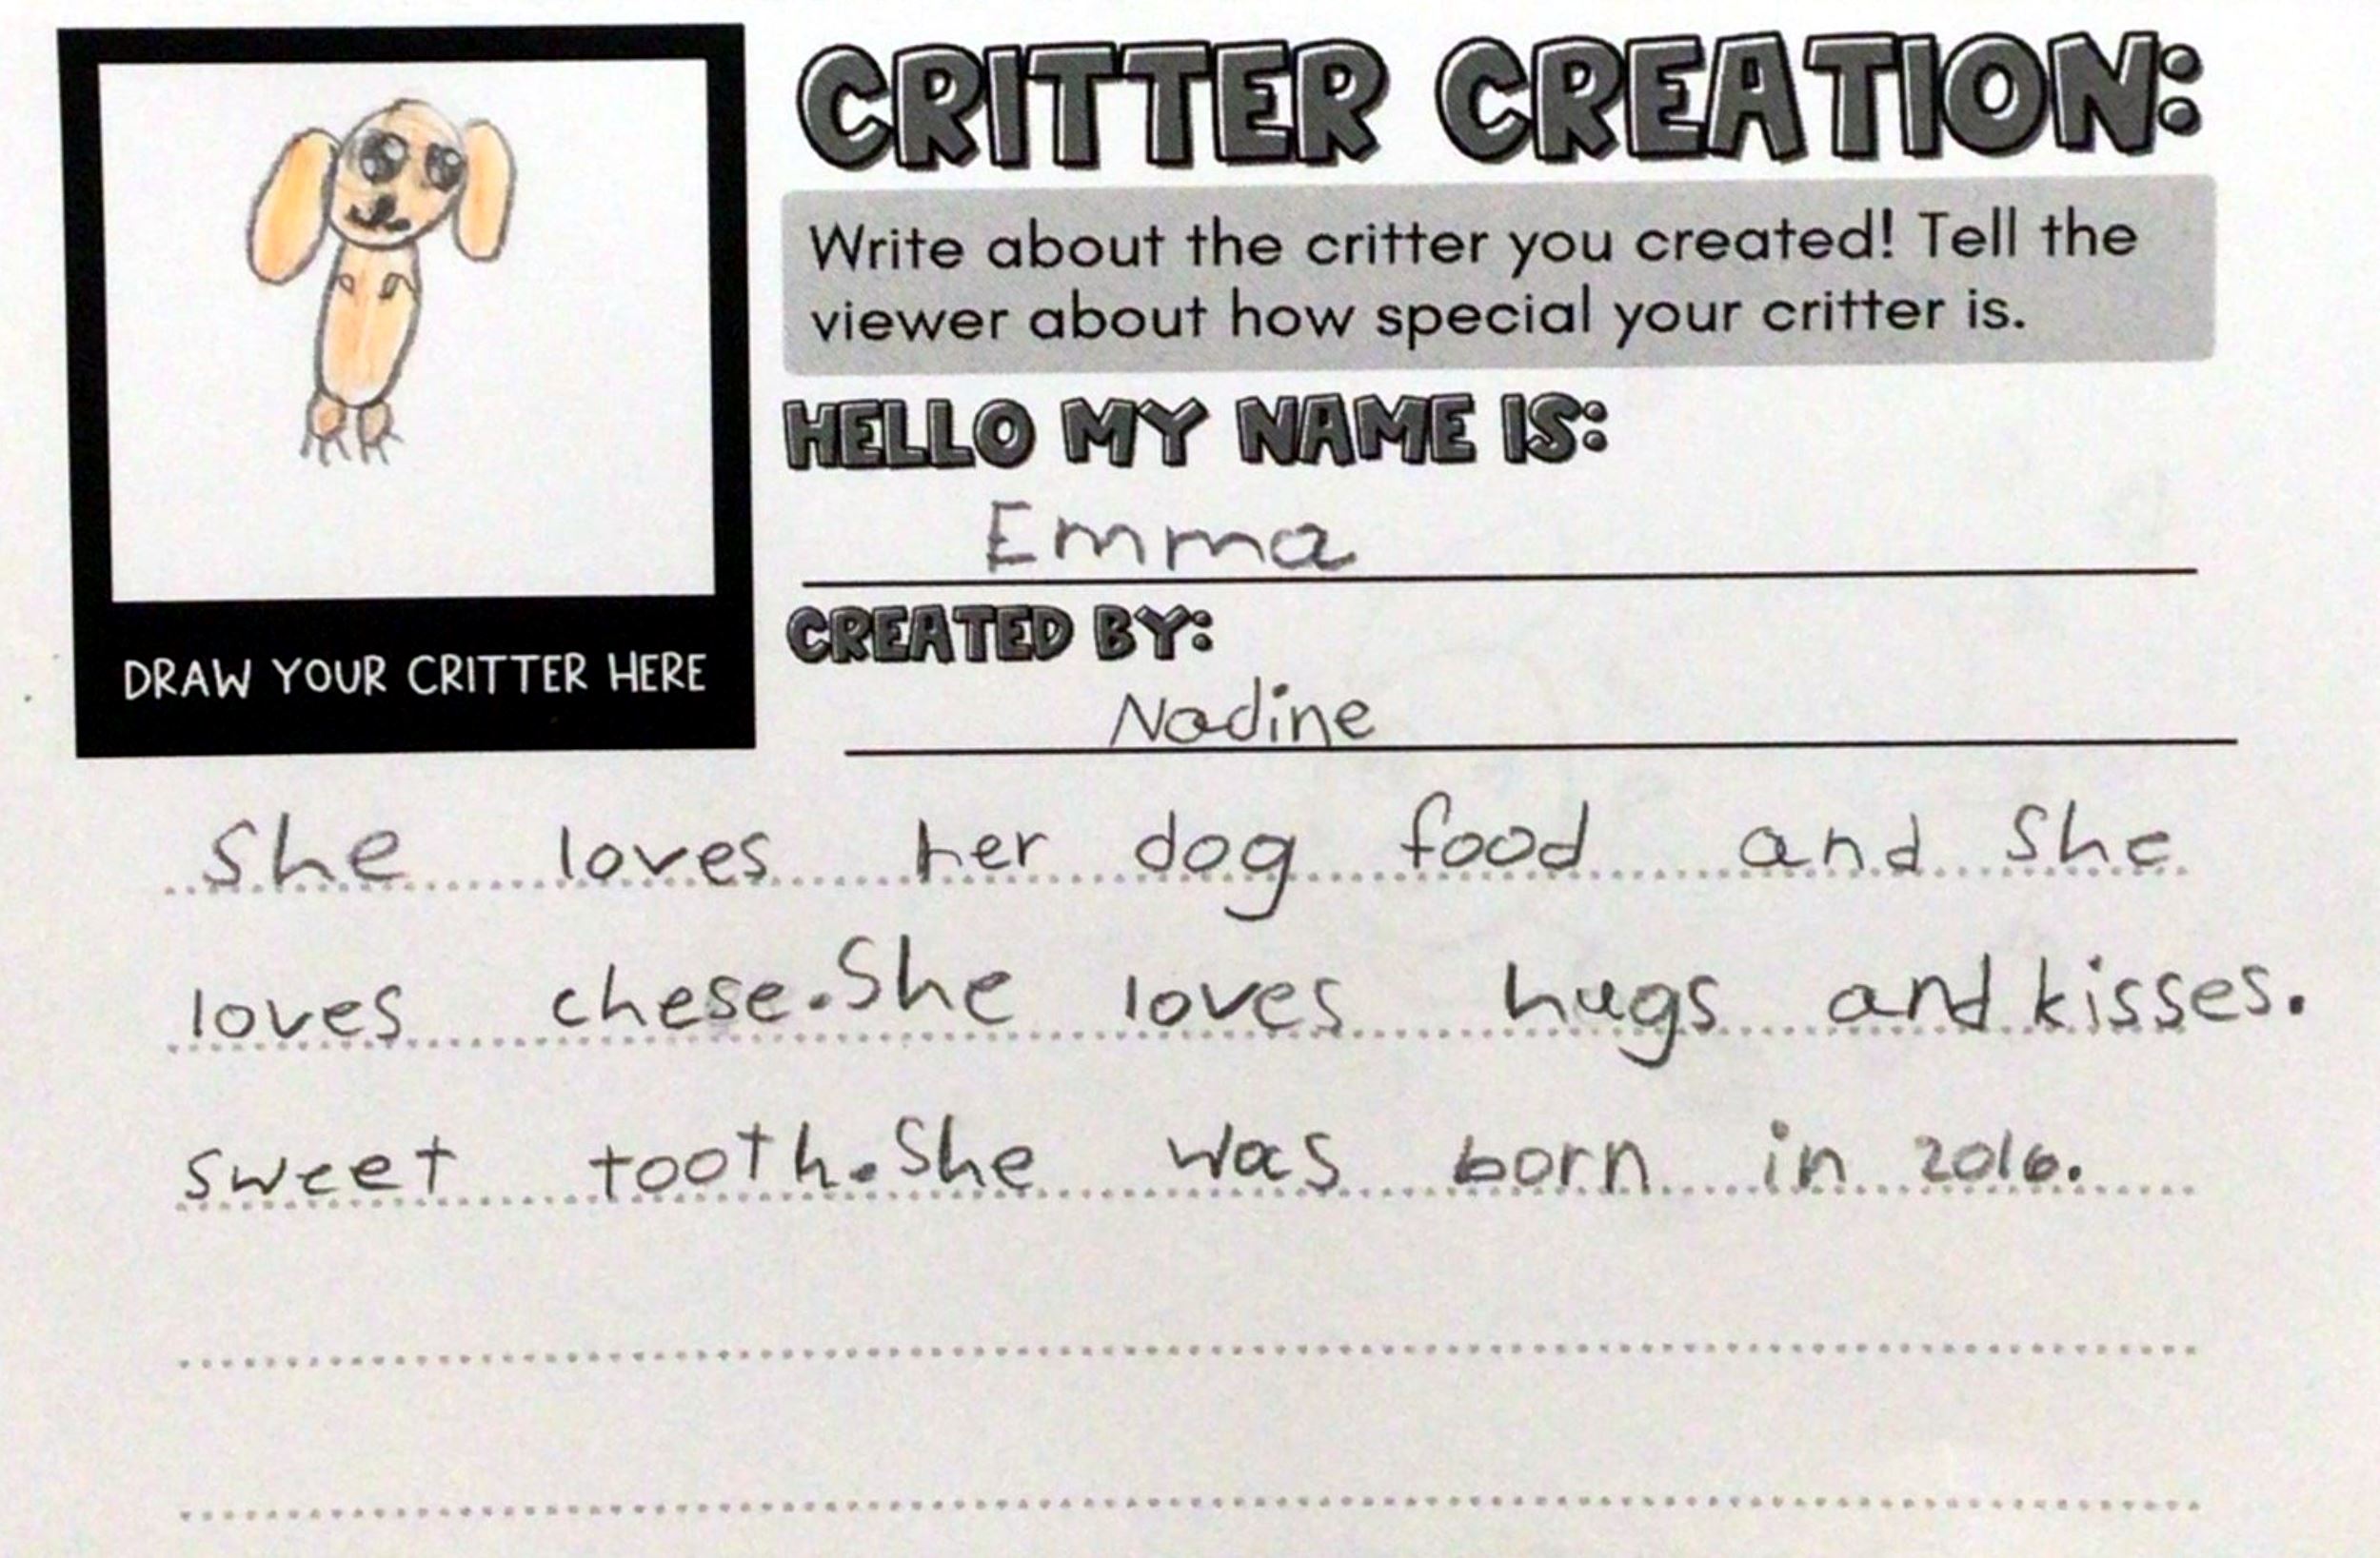 CRITTER CREATION:
Write about the critter you created! Tell the
viewer about how special your critter is.
HELLO MY NAME IS:
Emma
CREATED BY:
Nadine
DRAW YOUR CRITTER HERE
She loves her dog food and She
loves chese.She loves hugs and kisses.
sweet tooth.She was born in 2016.